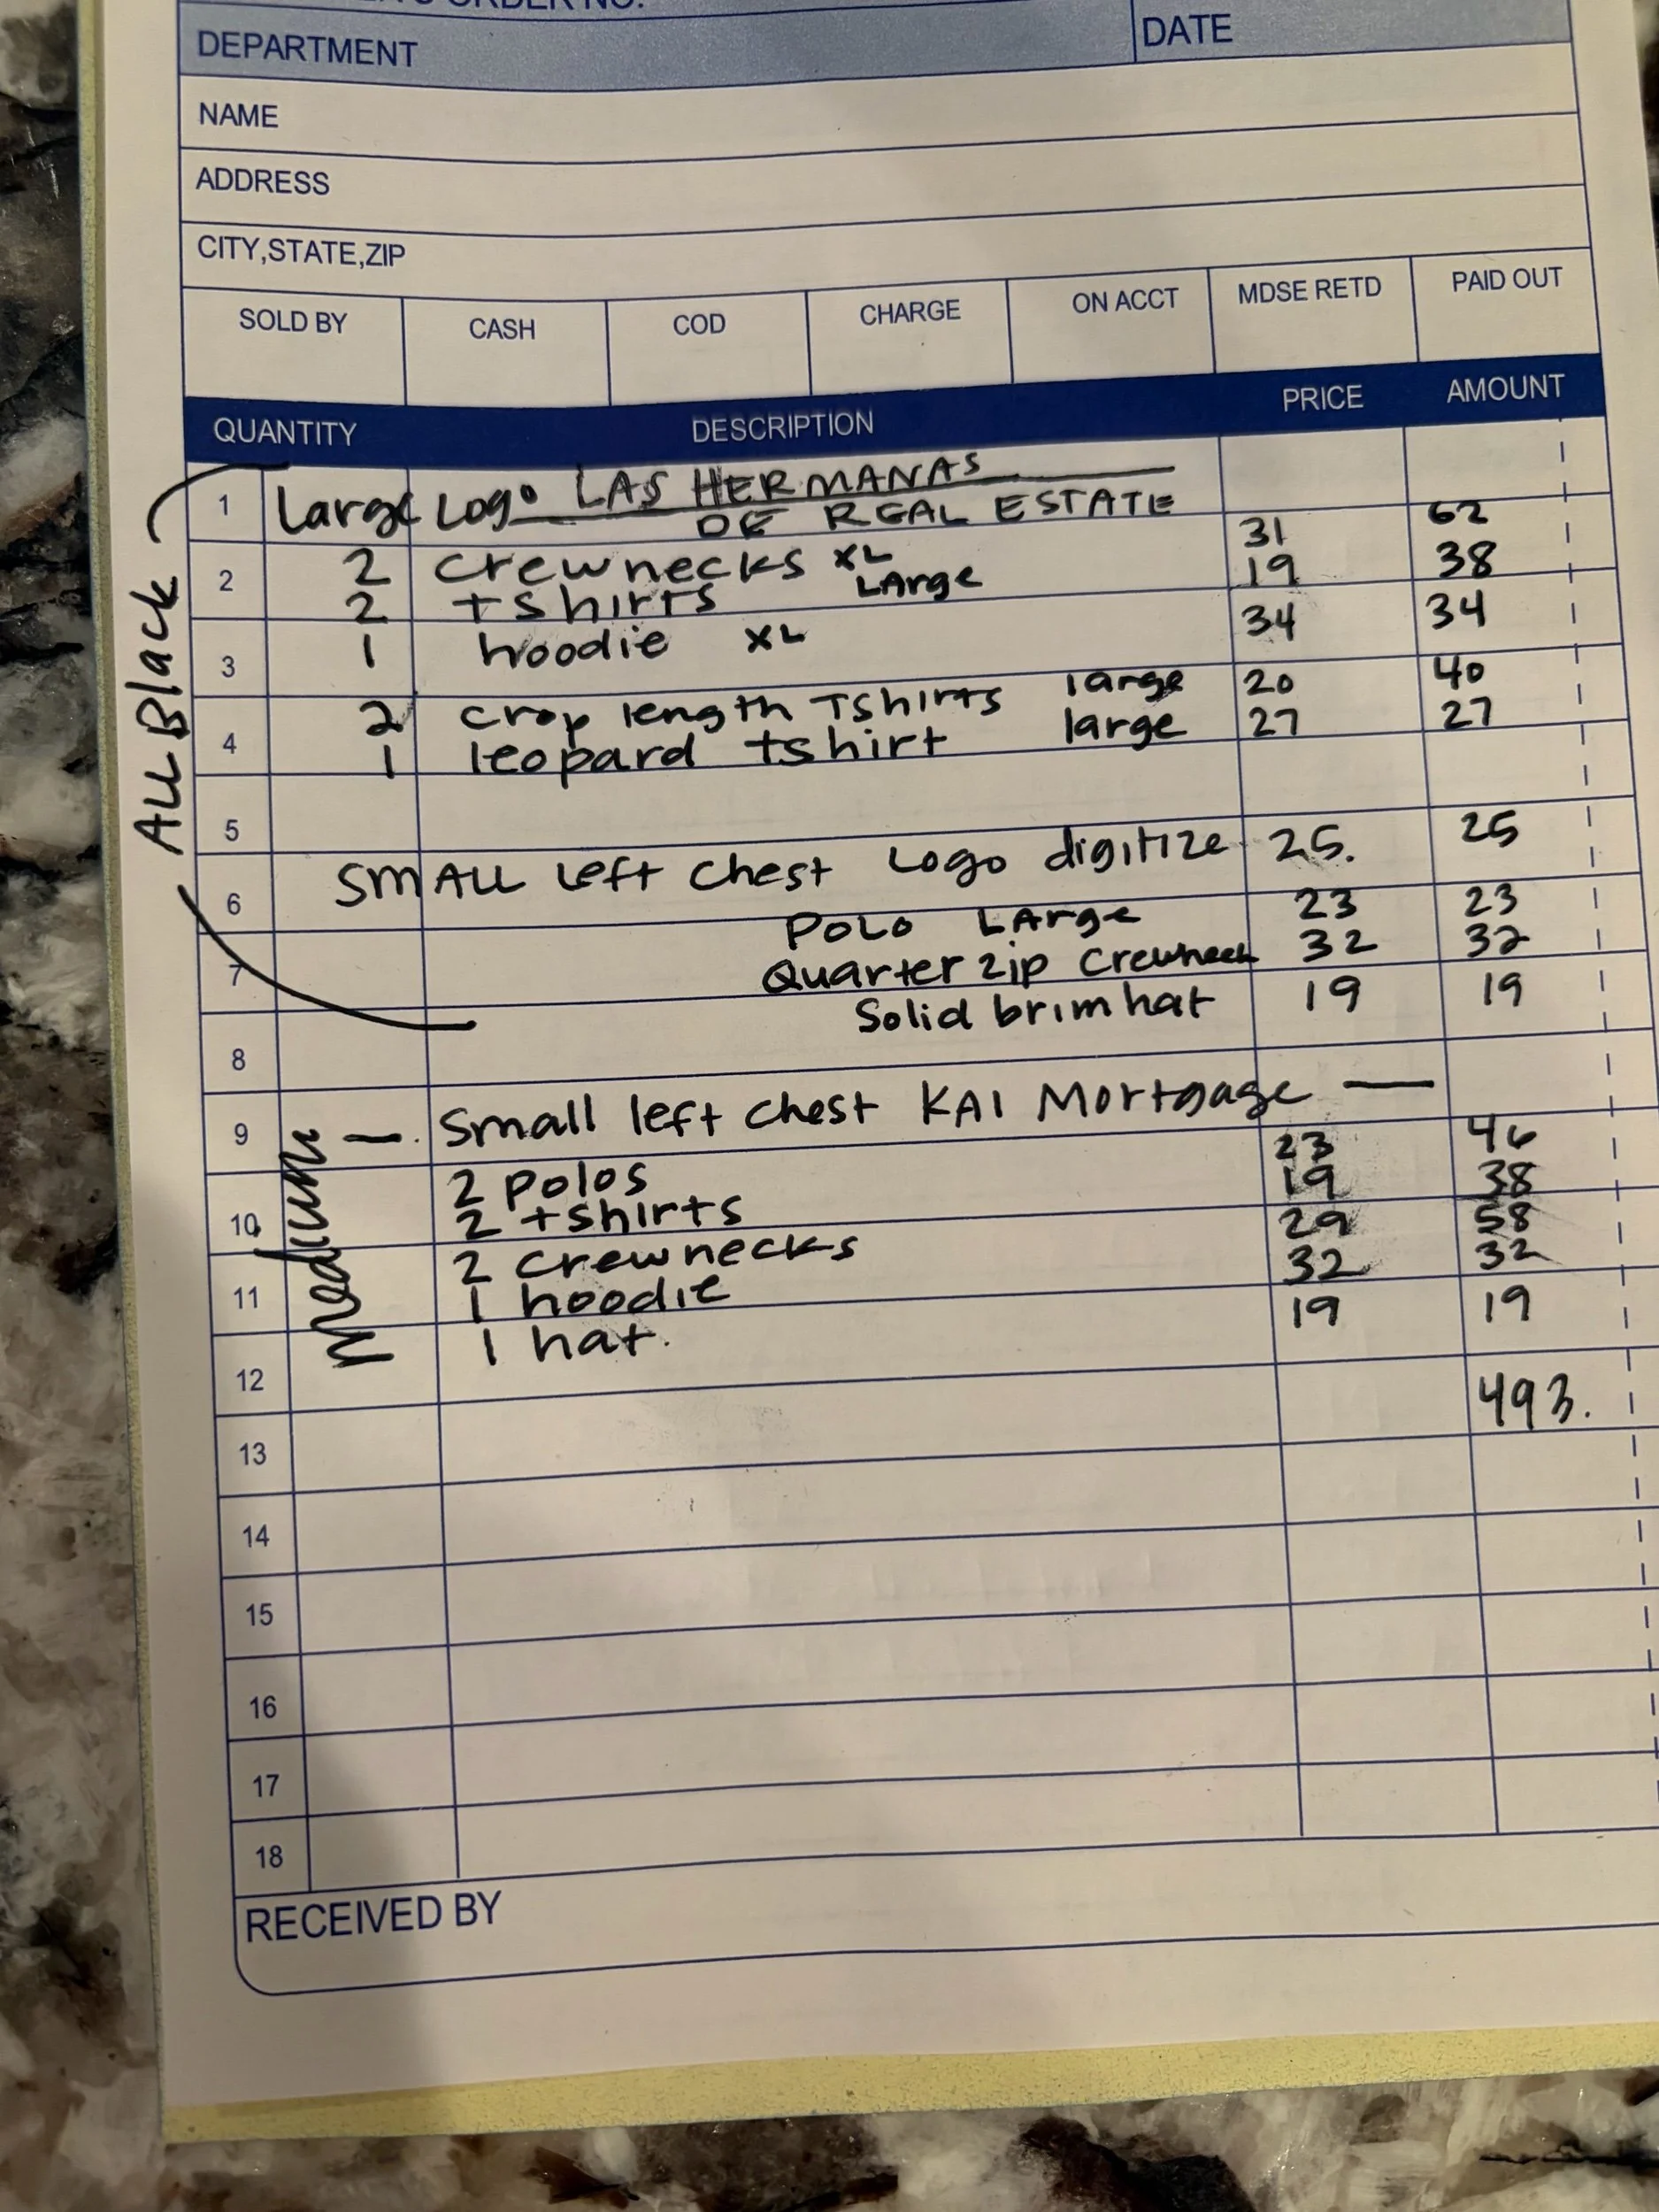 DEPARTMENT DATE
NAME
ADDRESS
CITY,STATE,ZIP
SOLD BY CASH COD CHARGE ON ACCT MDSE RETD PAID OUT
QUANTITY DESCRIPTION PRICE AMOUNT
ALL Black
1 Large Logo LAS HERMANAS
DE REAL ESTATE
2 2 crewnecks XL 31 62
2 tshirts LArge 19 38
3 1 hoodie XL 34 34
2 crop length Tshirts large 20 40
4 1 leopard tshirt large 27 27
5
6 SMALL Left Chest Logo digitize 25. 25
POLO LArge 23 23
7 Quarter zip Crewneck 32 32
Solid brim hat 19 19
8
9 — Small left chest KAI Mortgage —
Medium
2 polos 23 46
10 2 tshirts 19 38
2 crewnecks 29 58
11 1 hoodie 32 32
1 hat. 19 19
12 493.
13
14
15
16
17
18
RECEIVED BY